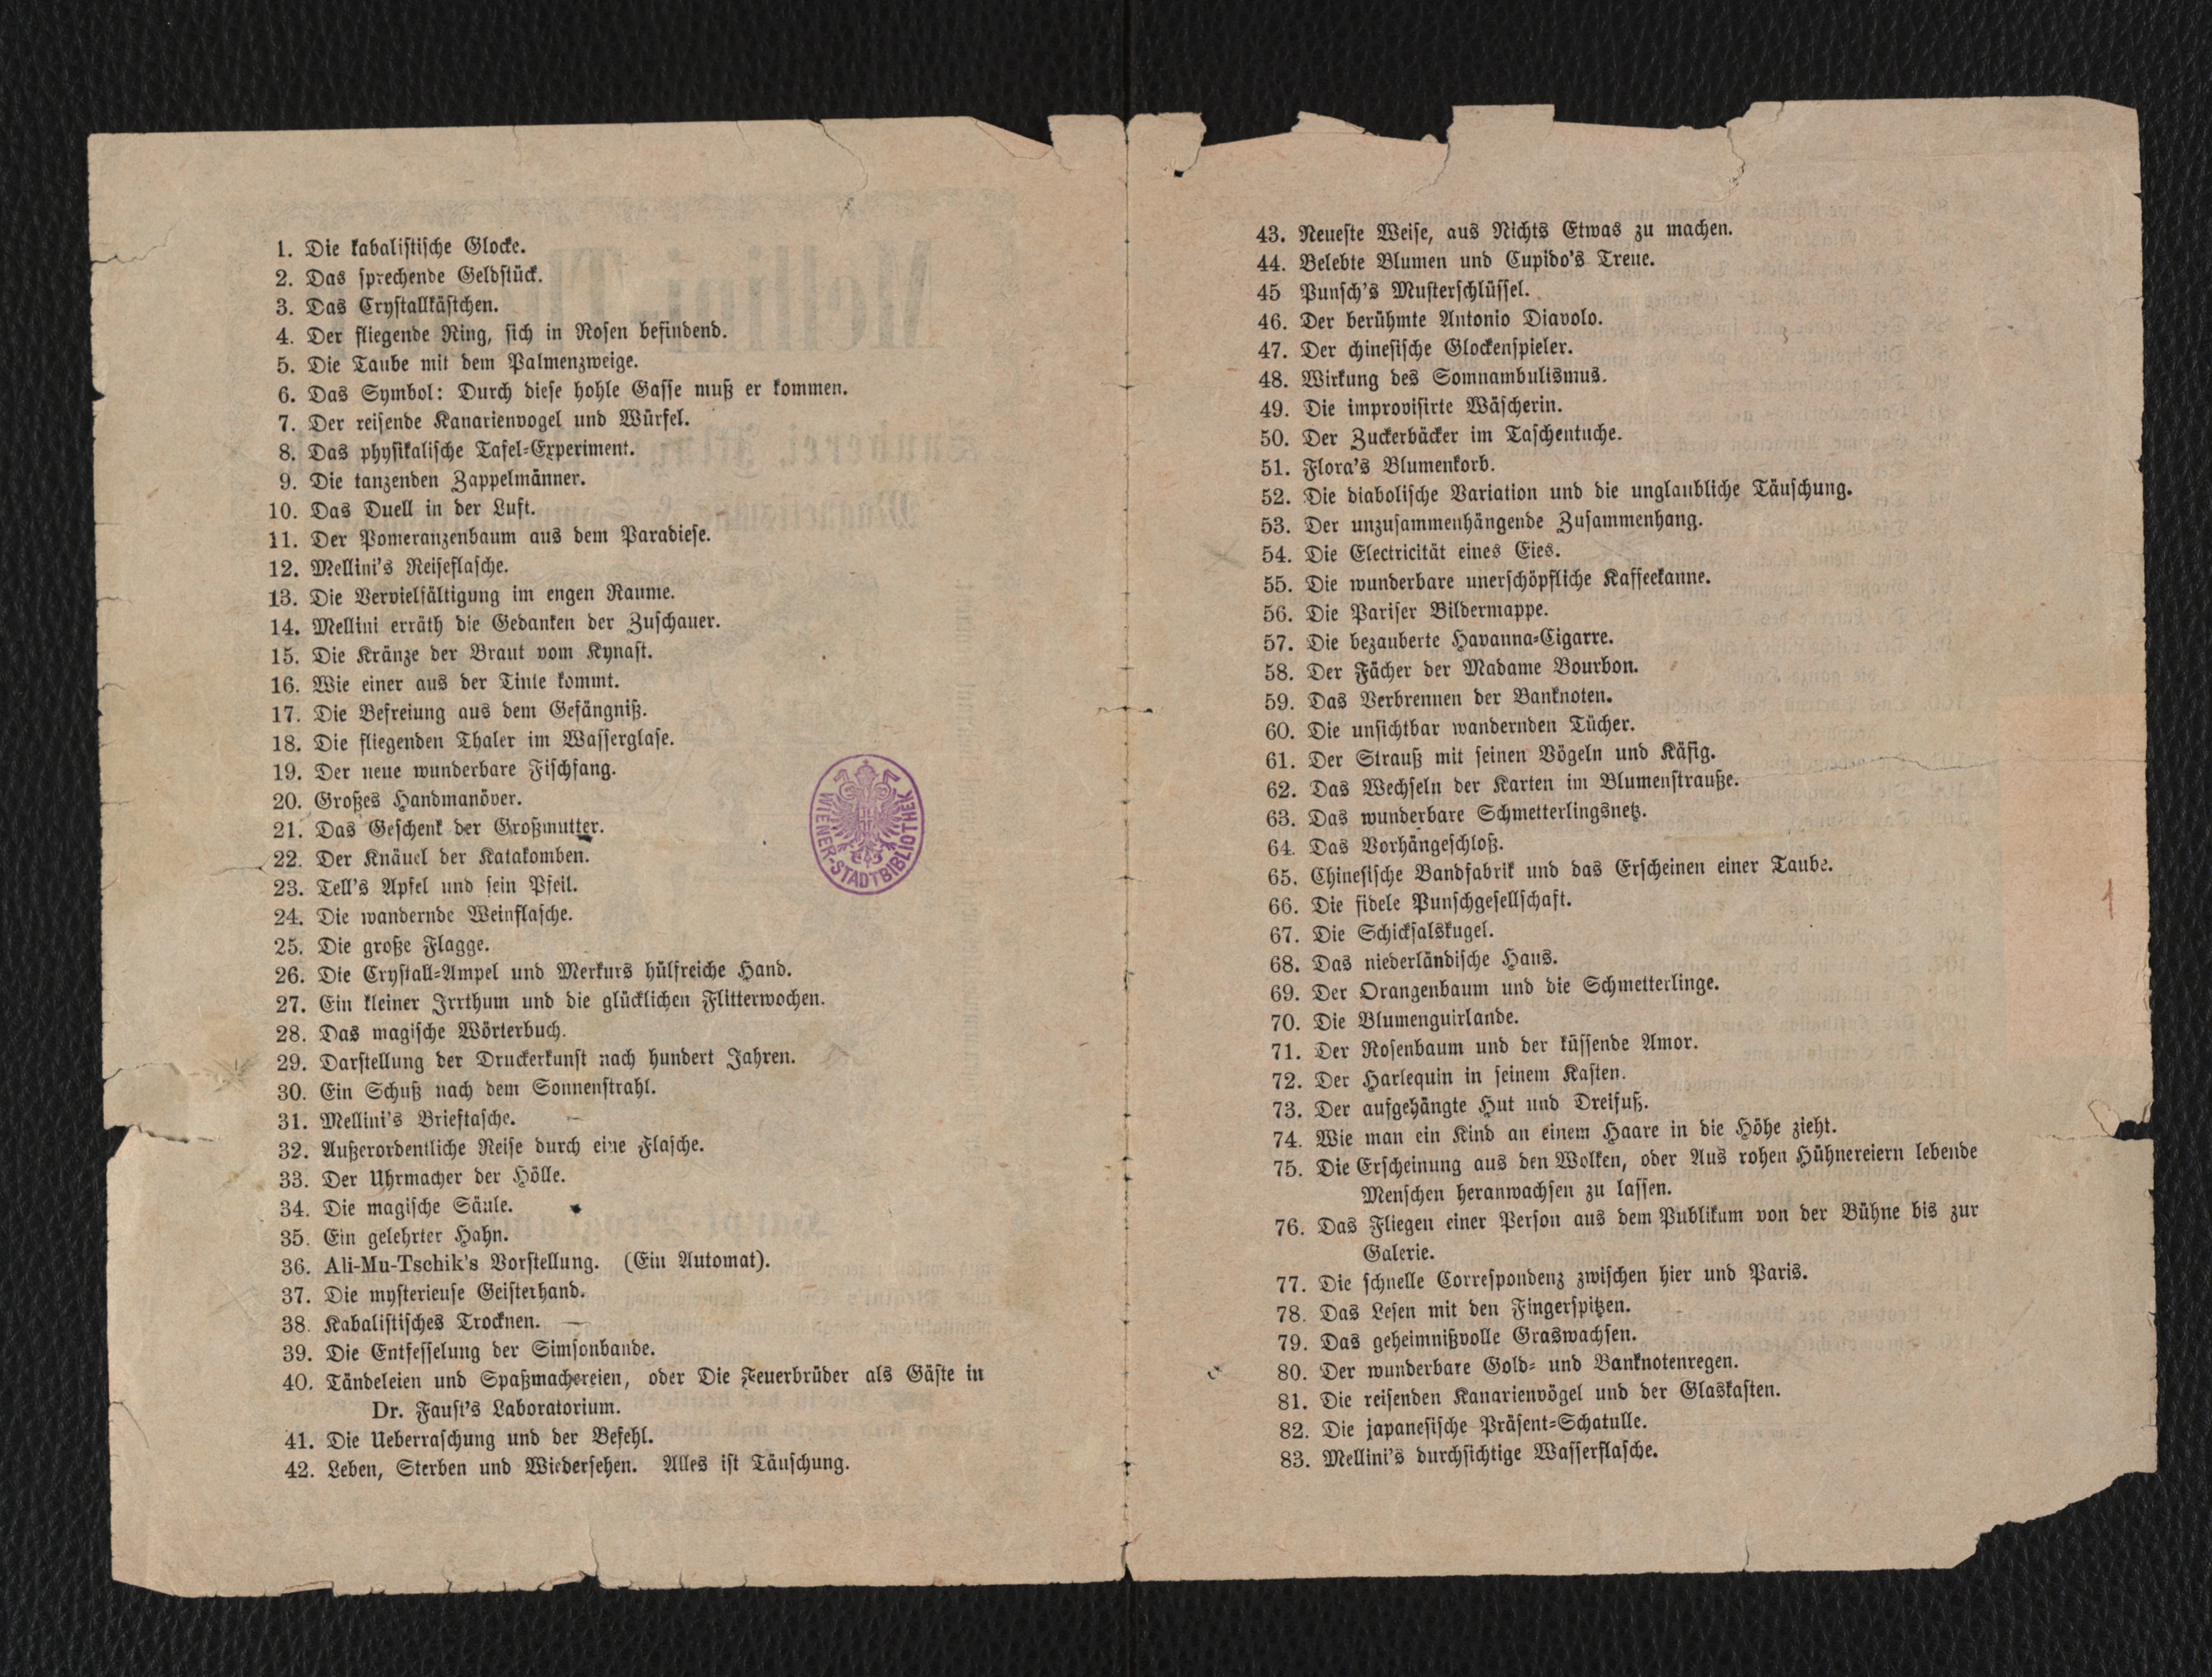 1. Die kabalistische Glocke.
2. Das sprechende Geldstück.
3. Das Crystallkästchen.
4. Der fliegende Ring, sich in Rosen befindend.
5. Die Taube mit dem Palmenzweige.
6. Das Symbol: Durch diese hohle Gasse muß er kommen.
7. Der reisende Kanarienvogel und Würfel.
8. Das physikalische Tafel-Experiment.
9. Die tanzenden Zappelmänner.
10. Das Duell in der Luft.
11. Der Pomeranzenbaum aus dem Paradiese.
12. Mellini's Reiseflasche.
13. Die Vervielfältigung im engen Raume.
14. Mellini erräth die Gedanken der Zuschauer.
15. Die Kränze der Braut vom Kynast.
16. Wie einer aus der Tinte kommt.
17. Die Befreiung aus dem Gefängniß.
18. Die fliegenden Thaler im Wasserglase.
19. Der neue wunderbare Fischfang.
20. Großes Handmanöver.
21. Das Geschenk der Großmutter.
22. Der Knäuel der Katakomben.
23. Tell's Apfel und sein Pfeil.
24. Die wandernde Weinflasche.
25. Die große Flagge.
26. Die Crystall-Ampel und Merkurs hülfreiche Hand.
27. Ein kleiner Irrthum und die glücklichen Flitterwochen.
28. Das magische Wörterbuch.
29. Darstellung der Druckerkunst nach hundert Jahren.
30. Ein Schuß nach dem Sonnenstrahl.
31. Mellini's Brieftasche.
32. Außerordentliche Reise durch eine Flasche.
33. Der Uhrmacher der Hölle.
34. Die magische Säule.
35. Ein gelehrter Hahn.
36. Ali-Mu-Tschik's Vorstellung. (Ein Automat).
37. Die mysterieuse Geisterhand.
38. Kabalistisches Trocknen.
39. Die Entfesselung der Simsonbande.
40. Tändeleien und Spaßmachereien, oder Die Feuerbrüder als Gäste in
Dr. Faust's Laboratorium.
41. Die Ueberraschung und der Befehl.
42. Leben, Sterben und Wiedersehen. Alles ist Täuschung.
WIENER-STADTBIBLIOTHEK
43. Neueste Weise, aus Nichts Etwas zu machen.
44. Belebte Blumen und Cupido's Treue.
45 Punsch's Musterschlüssel.
46. Der berühmte Antonio Diavolo.
47. Der chinesische Glockenspieler.
48. Wirkung des Somnambulismus.
49. Die improvisirte Wäscherin.
50. Der Zuckerbäcker im Taschentuche.
51. Flora's Blumenkorb.
52. Die diabolische Variation und die unglaubliche Täuschung.
53. Der unzusammenhängende Zusammenhang.
54. Die Electricität eines Eies.
55. Die wunderbare unerschöpfliche Kaffeekanne.
56. Die Pariser Bildermappe.
57. Die bezauberte Havanna-Cigarre.
58. Der Fächer der Madame Bourbon.
59. Das Verbrennen der Banknoten.
60. Die unsichtbar wandernden Tücher.
61. Der Strauß mit seinen Vögeln und Käfig.
62. Das Wechseln der Karten im Blumenstrauße.
63. Das wunderbare Schmetterlingsnetz.
64. Das Vorhängeschloß.
65. Chinesische Bandfabrik und das Erscheinen einer Taube.
66. Die fidele Punschgesellschaft.
67. Die Schicksalskugel.
68. Das niederländische Haus.
69. Der Orangenbaum und die Schmetterlinge.
70. Die Blumenguirlande.
71. Der Rosenbaum und der küssende Amor.
72. Der Harlequin in seinem Kasten.
73. Der aufgehängte Hut und Dreifuß.
74. Wie man ein Kind an einem Haare in die Höhe zieht.
75. Die Erscheinung aus den Wolken, oder Aus rohen Hühnereiern lebende
Menschen heranwachsen zu lassen.
76. Das Fliegen einer Person aus dem Publikum von der Bühne bis zur
Galerie.
77. Die schnelle Correspondenz zwischen hier und Paris.
78. Das Lesen mit den Fingerspitzen.
79. Das geheimnißvolle Graswachsen.
80. Der wunderbare Gold- und Banknotenregen.
81. Die reisenden Kanarienvögel und der Glaskasten.
82. Die japanesische Präsent-Schatulle.
83. Mellini's durchsichtige Wasserflasche.
1